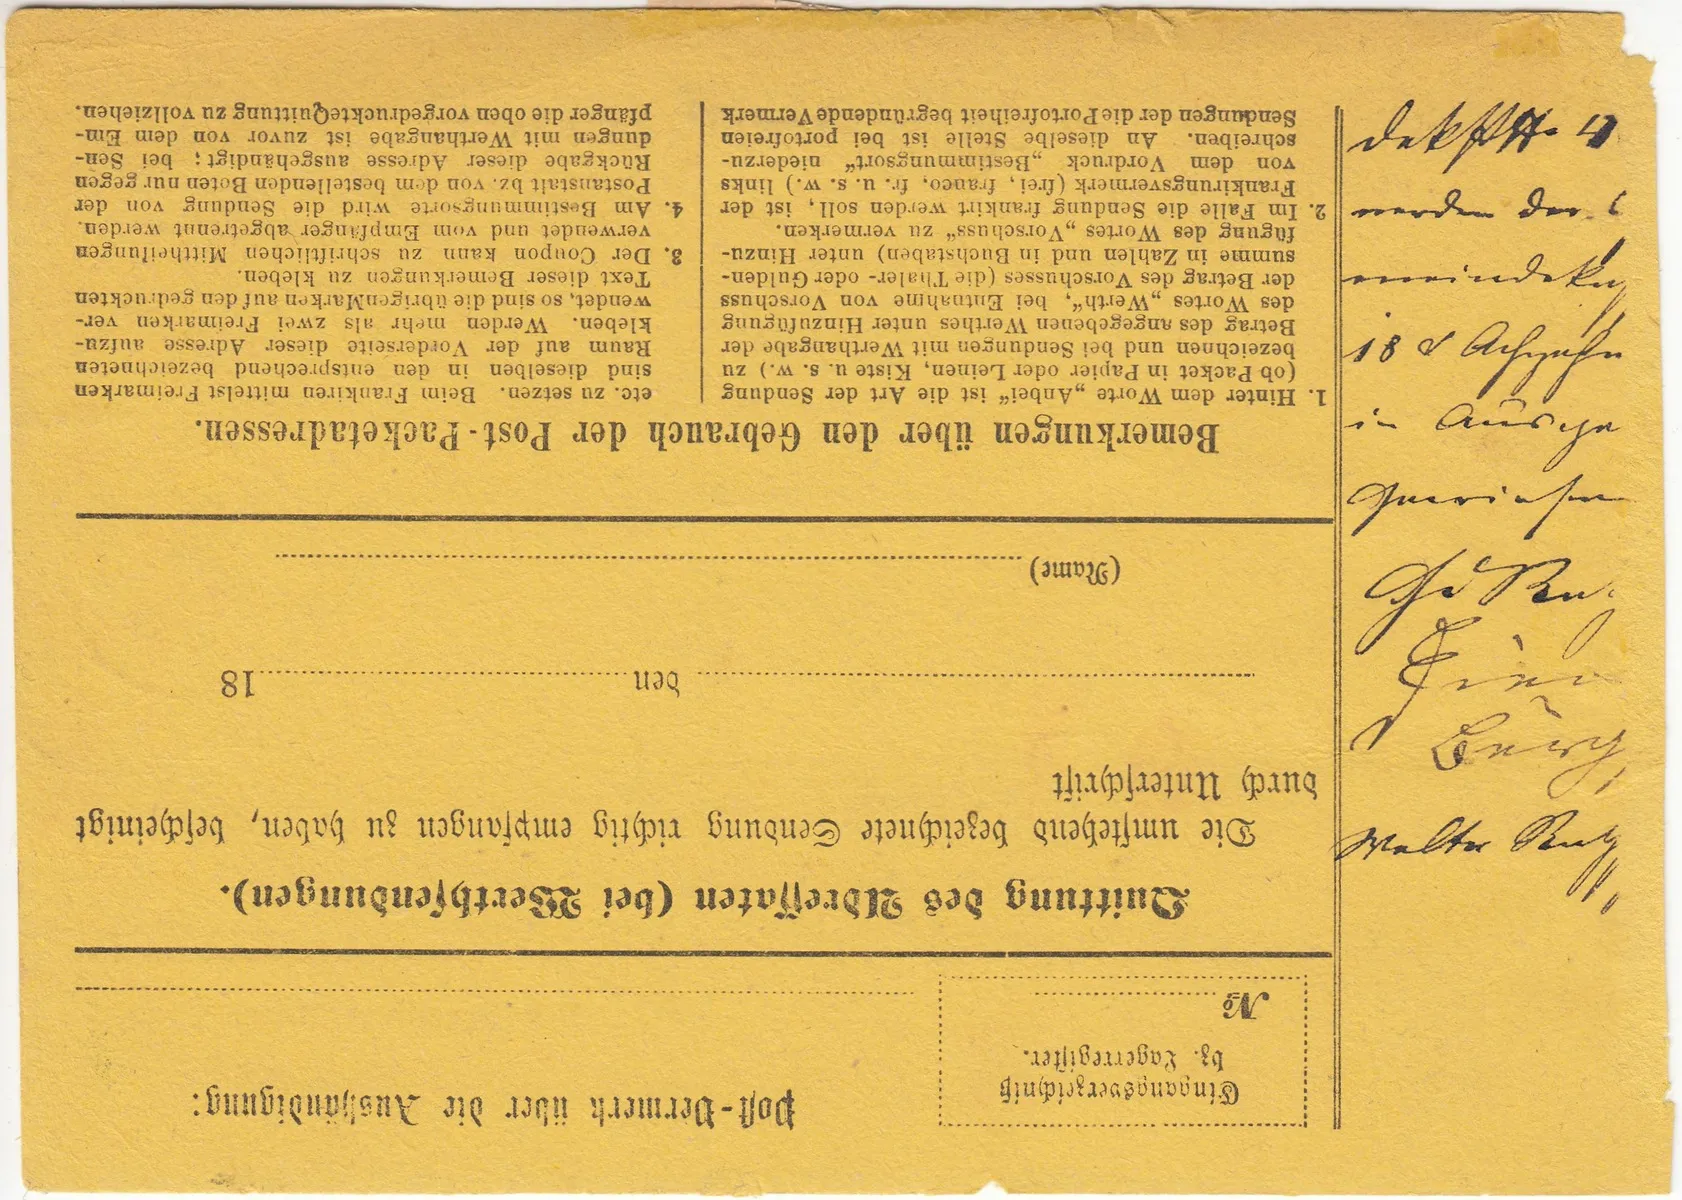 Post-Vermerk über die Aushändigung:
Eingangsverzeichniß
bz. Lagerregister.
№
Quittung des Adressaten (bei Werthsendungen).
Die umstehend bezeichnete Sendung richtig empfangen zu haben, bescheinigt
durch Unterschrift
den 18
(Name)
Bemerkungen über den Gebrauch der Post-Packetadressen.
1. Hinter dem Worte „Anbei“ ist die Art der Sendung
(ob Packet in Papier oder Leinen, Kiste u. s. w.) zu
bezeichnen und bei Sendungen mit Werthangabe der
Betrag des angegebenen Werthes unter Hinzufügung
des Wortes „Werth“, bei Entnahme von Vorschuss
der Betrag des Vorschusses (die Thaler- oder Gulden-
summe in Zahlen und in Buchstaben) unter Hinzu-
fügung des Wortes „Vorschuss“ zu vermerken.
2. Im Falle die Sendung frankirt werden soll, ist der
Frankirungsvermerk (frei, franco, fr. u. s. w.) links
von dem Vordruck „Bestimmungsort“ niederzu-
schreiben. An dieselbe Stelle ist bei portofreien
Sendungen der die Portofreiheit begründende Vermerk
etc. zu setzen. Beim Frankiren mittelst Freimarken
sind dieselben in den entsprechend bezeichneten
Raum auf der Vorderseite dieser Adresse aufzu-
kleben. Werden mehr als zwei Freimarken ver-
wendet, so sind die übrigen Marken auf den gedruckten
Text dieser Bemerkungen zu kleben.
3. Der Coupon kann zu schriftlichen Mittheilungen
verwendet und vom Empfänger abgetrennt werden.
4. Am Bestimmungsorte wird die Sendung von der
Postanstalt bz. von dem bestellenden Boten nur gegen
Rückgabe dieser Adresse ausgehändigt; bei Sen-
dungen mit Werthangabe ist zuvor von dem Em-
pfänger die oben vorgedruckte Quittung zu vollziehen.
werden der
18
in
Walter